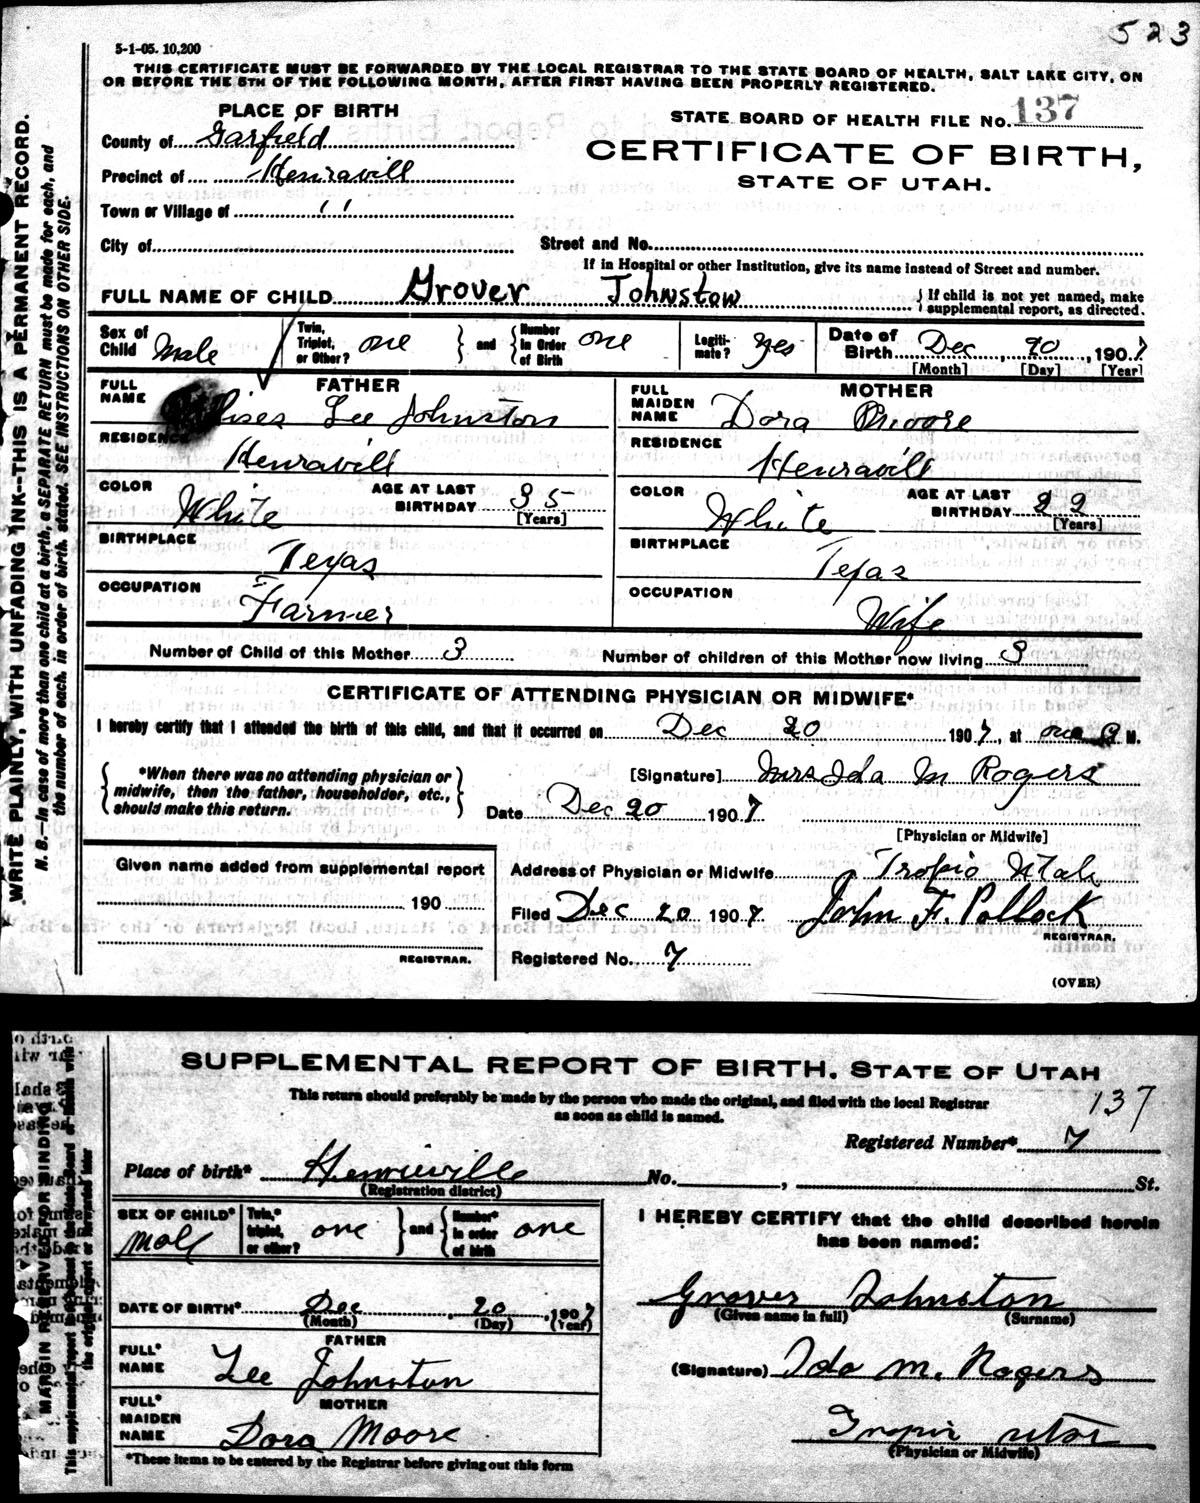 523
5-1-05. 10,200
THIS CERTIFICATE MUST BE FORWARDED BY THE LOCAL REGISTRAR TO THE STATE BOARD OF HEALTH, SALT LAKE CITY, ON
OR BEFORE THE 5TH OF THE FOLLOWING MONTH, AFTER FIRST HAVING BEEN PROPERLY REGISTERED.
PLACE OF BIRTH
STATE BOARD OF HEALTH FILE NO. 137
County of Garfield
CERTIFICATE OF BIRTH,
Precinct of Henravill
STATE OF UTAH.
Town or Village of " "
City of
Street and No.
If in Hospital or other Institution, give its name instead of Street and number.
FULL NAME OF CHILD Grover Johnston
If child is not yet named, make
supplemental report, as directed.
Sex of Child Male
Twin, Triplet, or Other? one
and
Number in Order of Birth one
Legitimate? Yes
Date of Birth Dec, 20, 1907
[Month] [Day] [Year]
FATHER
FULL NAME Lee Johnston
RESIDENCE Henravill
COLOR White
AGE AT LAST BIRTHDAY 35
[Years]
BIRTHPLACE Texas
OCCUPATION Farmer
MOTHER
FULL MAIDEN NAME Dora Moore
RESIDENCE Henravill
COLOR White
AGE AT LAST BIRTHDAY 22
[Years]
BIRTHPLACE Texas
OCCUPATION Wife
Number of Child of this Mother 3
Number of children of this Mother now living 3
CERTIFICATE OF ATTENDING PHYSICIAN OR MIDWIFE*
I hereby certify that I attended the birth of this child, and that it occurred on Dec 20 1907, at one M.
*When there was no attending physician or
midwife, then the father, householder, etc.,
should make this return.
[Signature] Mrs Ida M Rogers
Date Dec 20 1907
[Physician or Midwife]
Given name added from supplemental report
190
REGISTRAR.
Address of Physician or Midwife Tropic Utah
Filed Dec 20 1907 John F. Pollock
REGISTRAR.
Registered No. 7
(OVER)
WRITE PLAINLY, WITH UNFADING INK--THIS IS A PERMANENT RECORD.
N. B.--In case of more than one child at a birth, a SEPARATE RETURN must be made for each, and
the number of each, in order of birth, stated. SEE INSTRUCTIONS ON OTHER SIDE.
SUPPLEMENTAL REPORT OF BIRTH, STATE OF UTAH
This return should preferably be made by the person who made the original, and filed with the local Registrar
as soon as child is named.
137
Registered Number* 7
Place of birth* Henrieville No. , St.
(Registration district)
SEX OF CHILD* Male
Twin,* triplet, or other? one
and
Number* in order of birth one
I HEREBY CERTIFY that the child described herein
has been named:
DATE OF BIRTH* Dec, 20, 1907
(Month) (Day) (Year)
Grover Johnston
(Given name in full) (Surname)
FATHER
FULL* NAME Lee Johnston
(Signature) Ida M. Rogers
MOTHER
FULL* MAIDEN NAME Dora Moore
Tropic Utah
(Physician or Midwife)
*These items to be entered by the Registrar before giving out this form
MARGIN RESERVED FOR BINDING